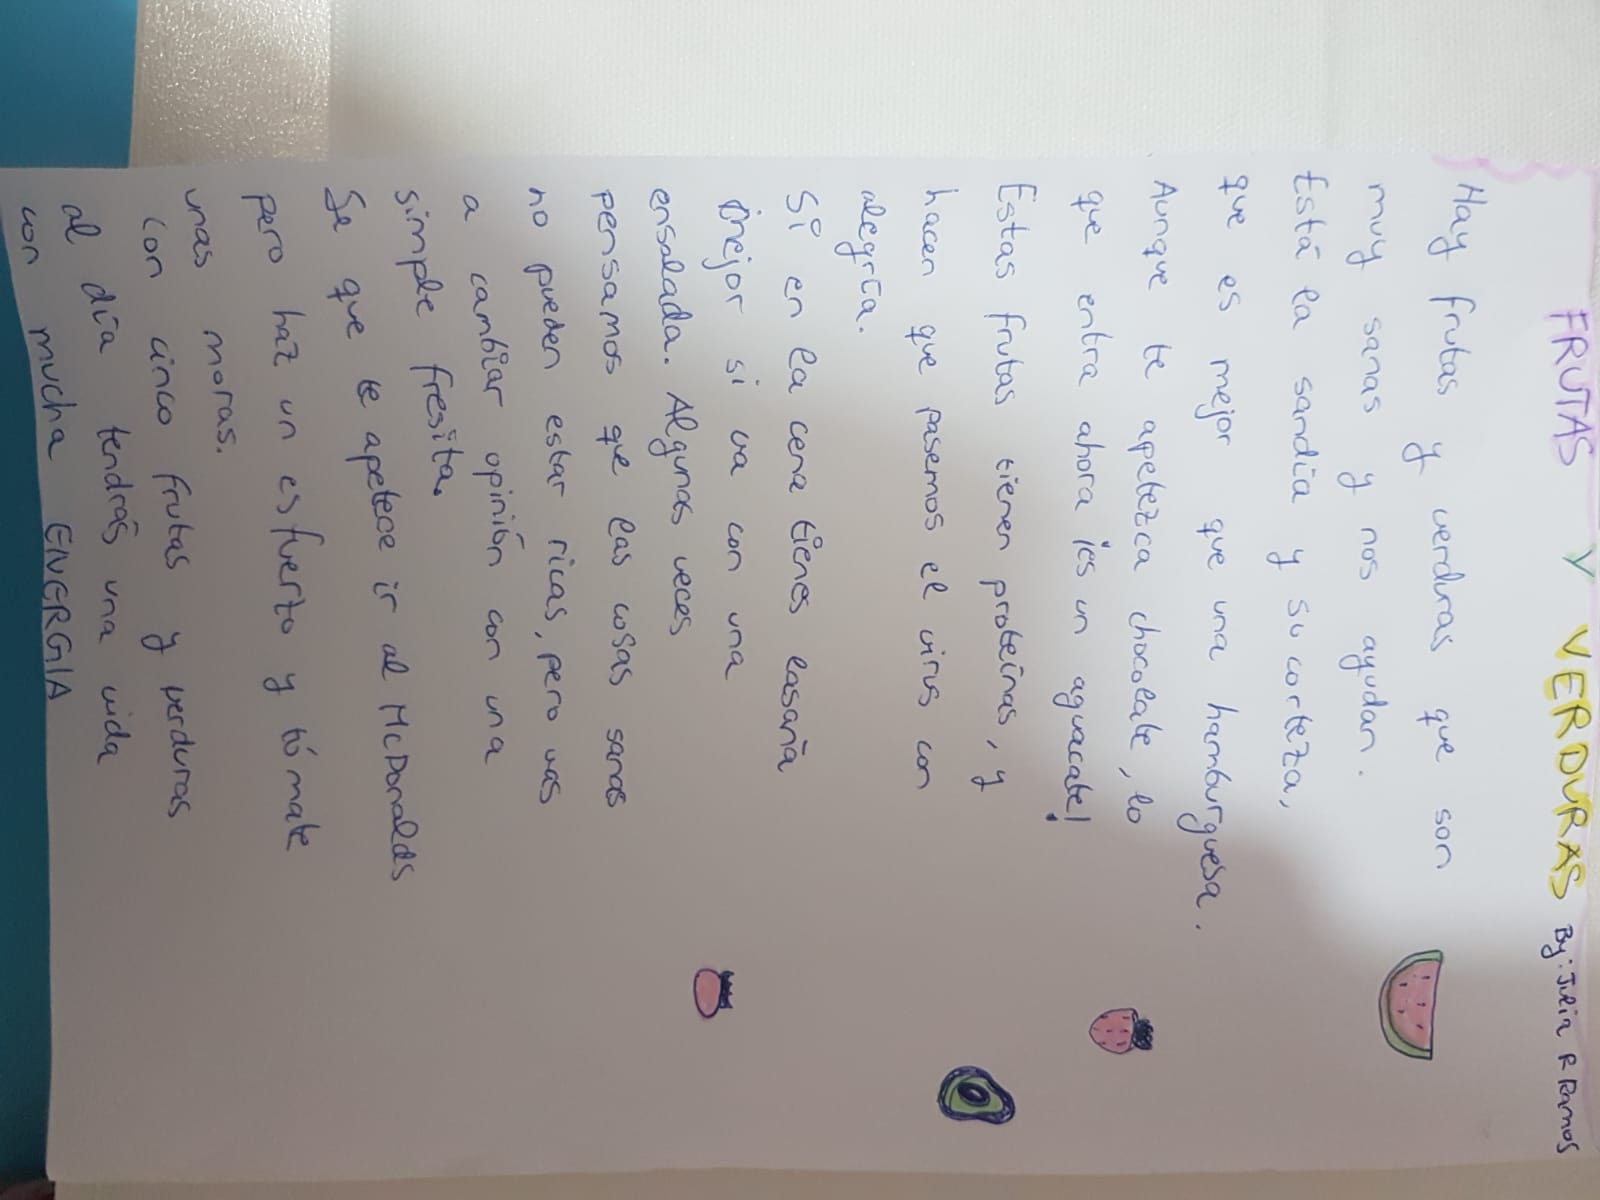 FRUTAS Y VERDURAS By: Julia R Ramos
Hay frutas y verduras que son
muy sanas y nos ayudan.
Está la sandía y su corteza,
que es mejor que una hamburguesa.
Aunque te apetezca chocolate, lo
que entra ahora ¡es un aguacate!
Estas frutas tienen proteínas, y
hacen que pasemos el virus con
alegría.
Si en la cena tienes lasaña
mejor si va con una
ensalada. Algunas veces
pensamos que las cosas sanas
no pueden estar ricas, pero vas
a cambiar opinión con una
simple fresita.
Se que te apetece ir al McDonalds
pero haz un esfuerzo y tómate
unas moras.
Con cinco frutas y verduras
al día tendrás una vida
con mucha ENERGIA